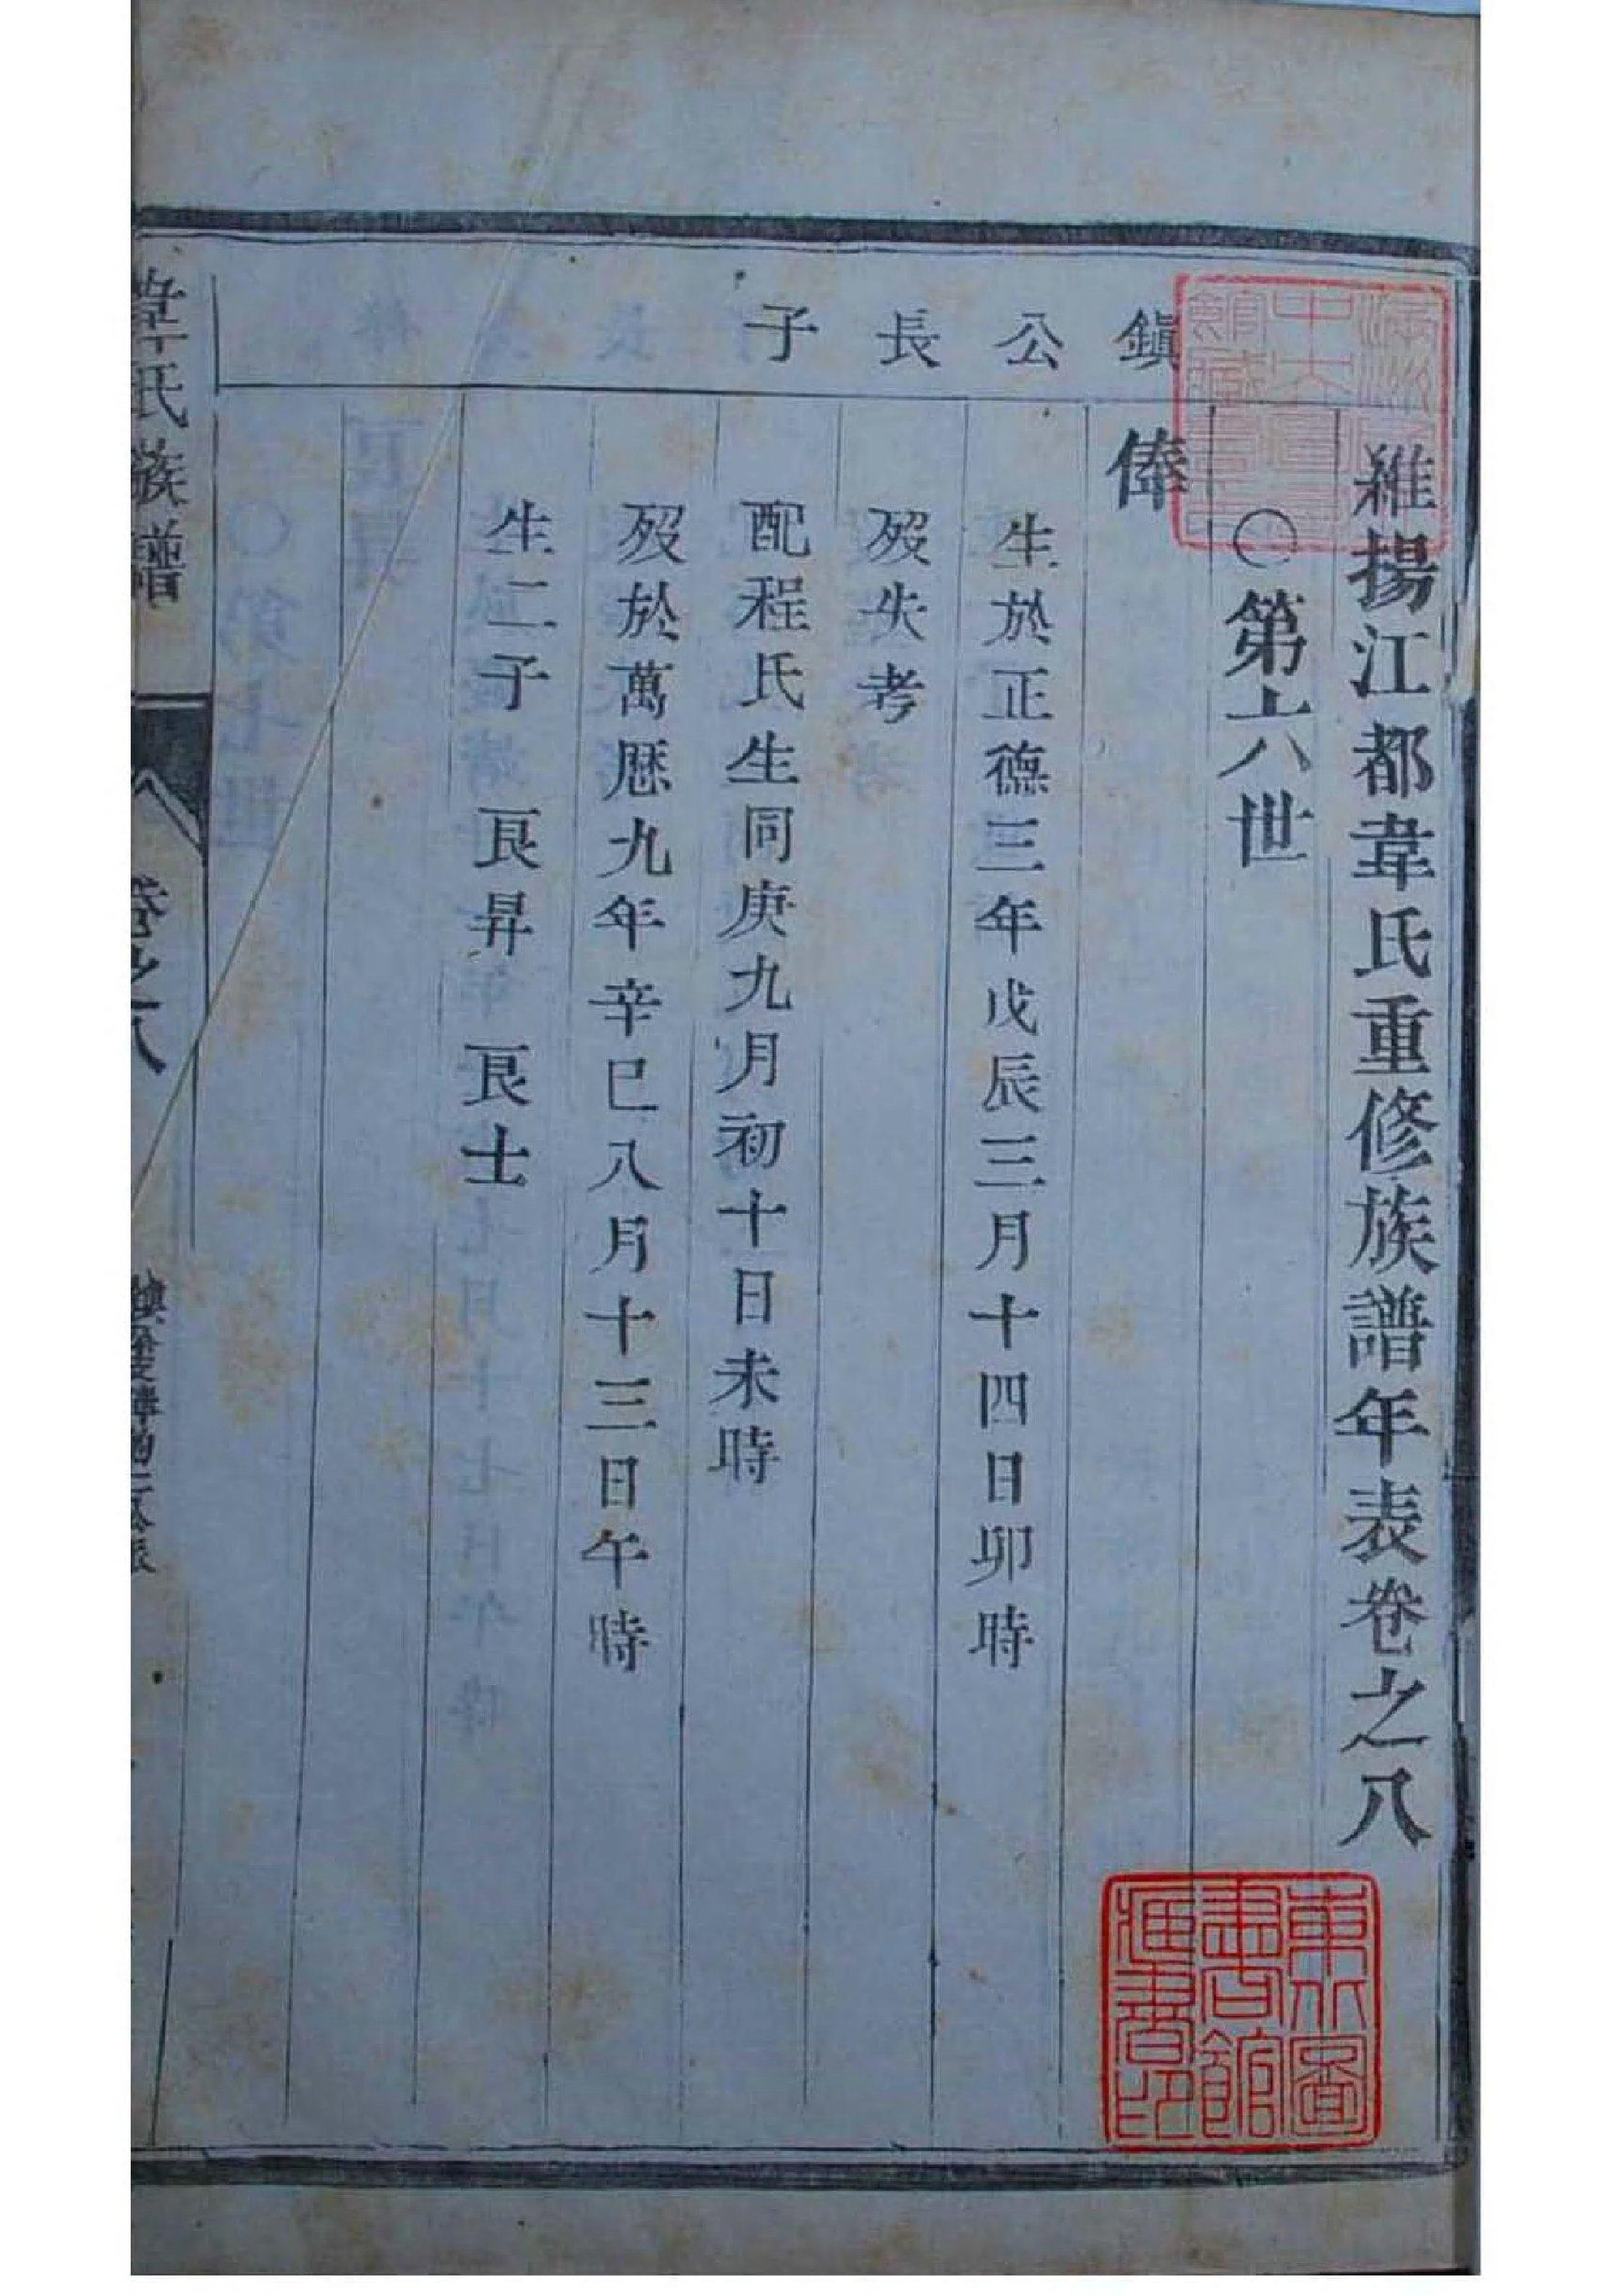 維揚江都韋氏重修族譜年表卷之八
〇第六世
鎮公長子
俸
生於正德三年戊辰三月十四日卯時
歿失考
配程氏生同庚九月初十日未時
歿於萬厯九年辛巳八月十三日午時
生二子 艮昇 艮士
韋氏族譜
卷之八
東北圖
書館
藏書印